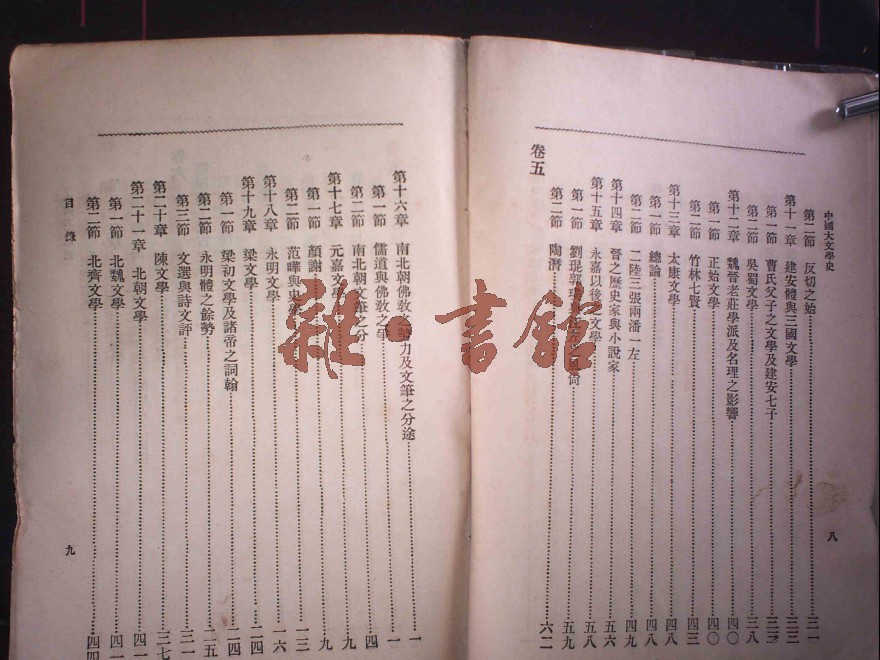 中國大文學史 八
第二節 反切之始 三一
第十一章 建安體與三國文學 三三
第一節 曹氏父子之文學及建安七子 三三
第二節 吳蜀文學 三八
第十二章 魏晉老莊學派及名理之影響 四〇
第一節 正始文學 四〇
第二節 竹林七賢 四三
第十三章 太康文學 四八
第一節 總論 四八
第二節 二陸三張兩潘一左 四九
第十四章 晉之歷史家與小說家 五六
第十五章 永嘉以後之文學 五八
第一節 劉琨郭璞 尙 五九
第二節 陶潛 六二
卷五
第十六章 南北朝佛敎之勢力及文筆之分途 一
第一節 儒道與佛敎之爭 一
第二節 南北朝文筆之分 四
第十七章 元嘉文學 九
第一節 顏謝 九
第二節 范曄與史學 一三
第十八章 永明文學 一六
第十九章 梁文學 二四
第一節 梁初文學及諸帝之詞翰 二四
第二節 永明體之餘勢 二五
第三節 文選與詩文評 三一
第二十章 陳文學 三七
第二十一章 北朝文學 四一
第一節 北魏文學 四一
第二節 北齊文學 四四
目錄 九
雜·書館